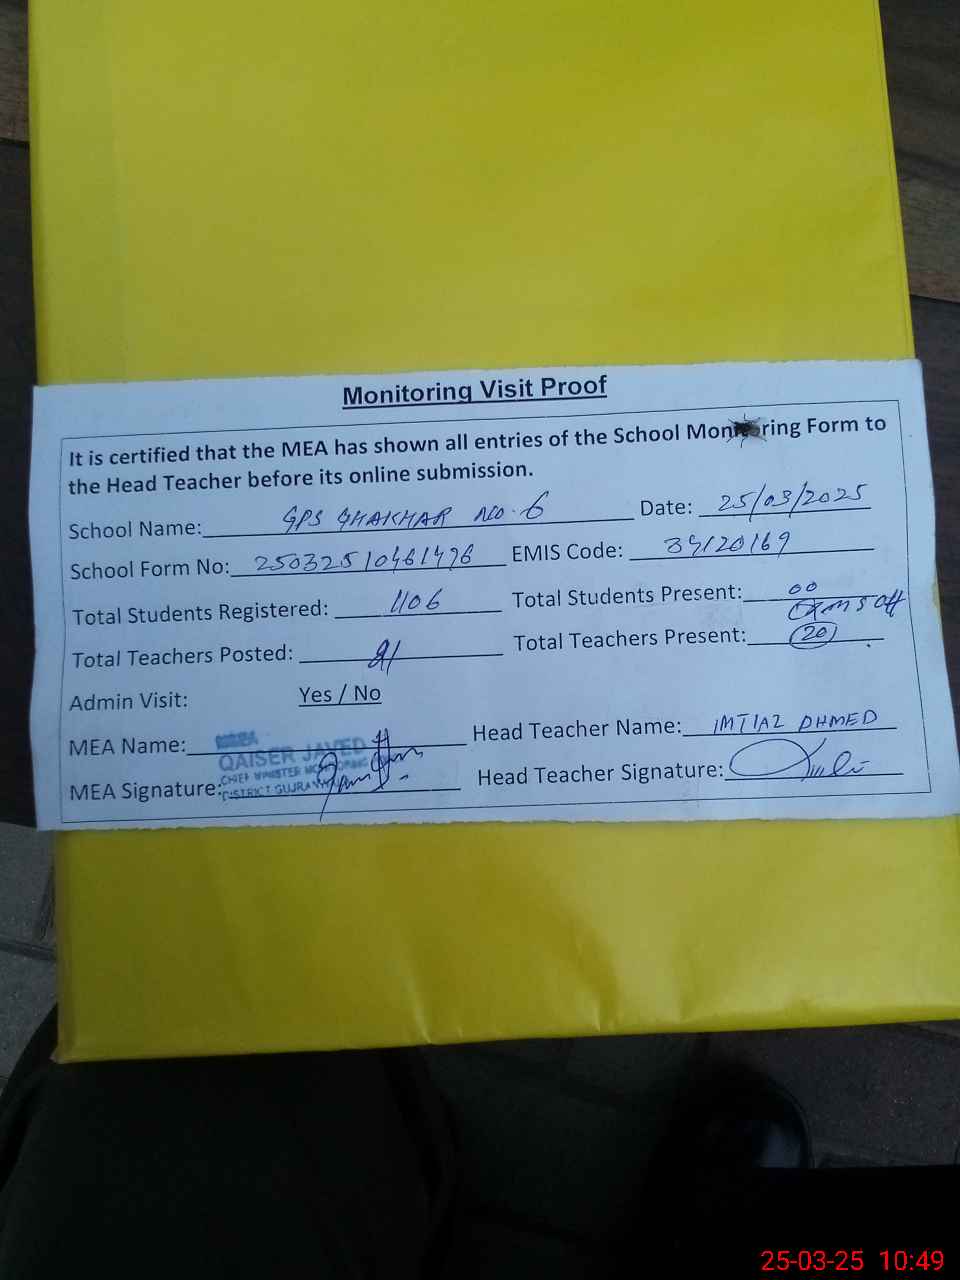 Monitoring Visit Proof
It is certified that the MEA has shown all entries of the School Monitoring Form to
the Head Teacher before its online submission.
School Name: GPS GHAKHAR NO. 6 Date: 25/03/2025
School Form No: EMIS Code: 34120169
Total Students Registered: 1106 Total Students Present: 00
Total Teachers Posted: 21 Total Teachers Present: 20
Admin Visit: Yes / No
MEA Name: Head Teacher Name: IMTIAZ AHMED
QAISER JAVED
CHIEF MINISTER MONITORING
DISTRICT GUJRA
MEA Signature: Head Teacher Signature:
25-03-25 10:49